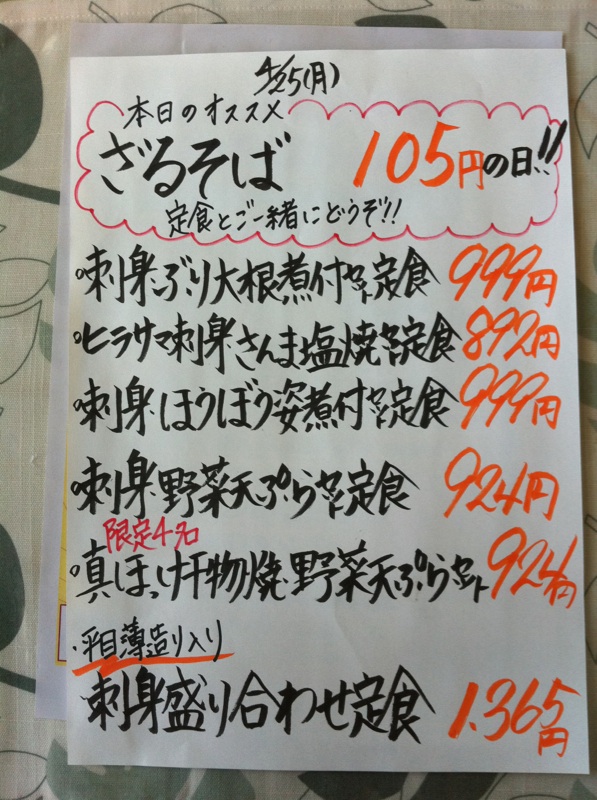 4/25(月)
本日のオススメ
ざるそば 105円の日!!
定食とご一緒にどうぞ!!
・刺身・ぶり大根煮付セット定食 999円
・ヒラサマ刺身さんま塩焼セット定食 892円
・刺身・ほうぼう姿煮付セット定食 999円
・刺身・野菜天ぷらセット定食 924円
限定4名
・真ほっけ干物焼・野菜天ぷらセット 924円
・平目薄造り入り
刺身盛り合わせ定食 1,365円